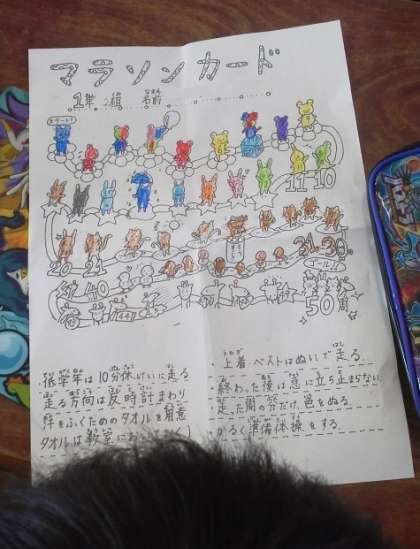 マラソンカード
1年 2組 名前
スタート!
11 10
20 21
30
40
ゴール!!
50周
・低学年は10分休けいに走る
・走る方向は反時計まわり
・汗をふくためのタオルを用意
タオルは教室にお
・上着 ベストはぬいで走る。
・終わった後は急に立ち止まらない
・走った周の分だけ、色をぬる。
・かるく準備体操をする。